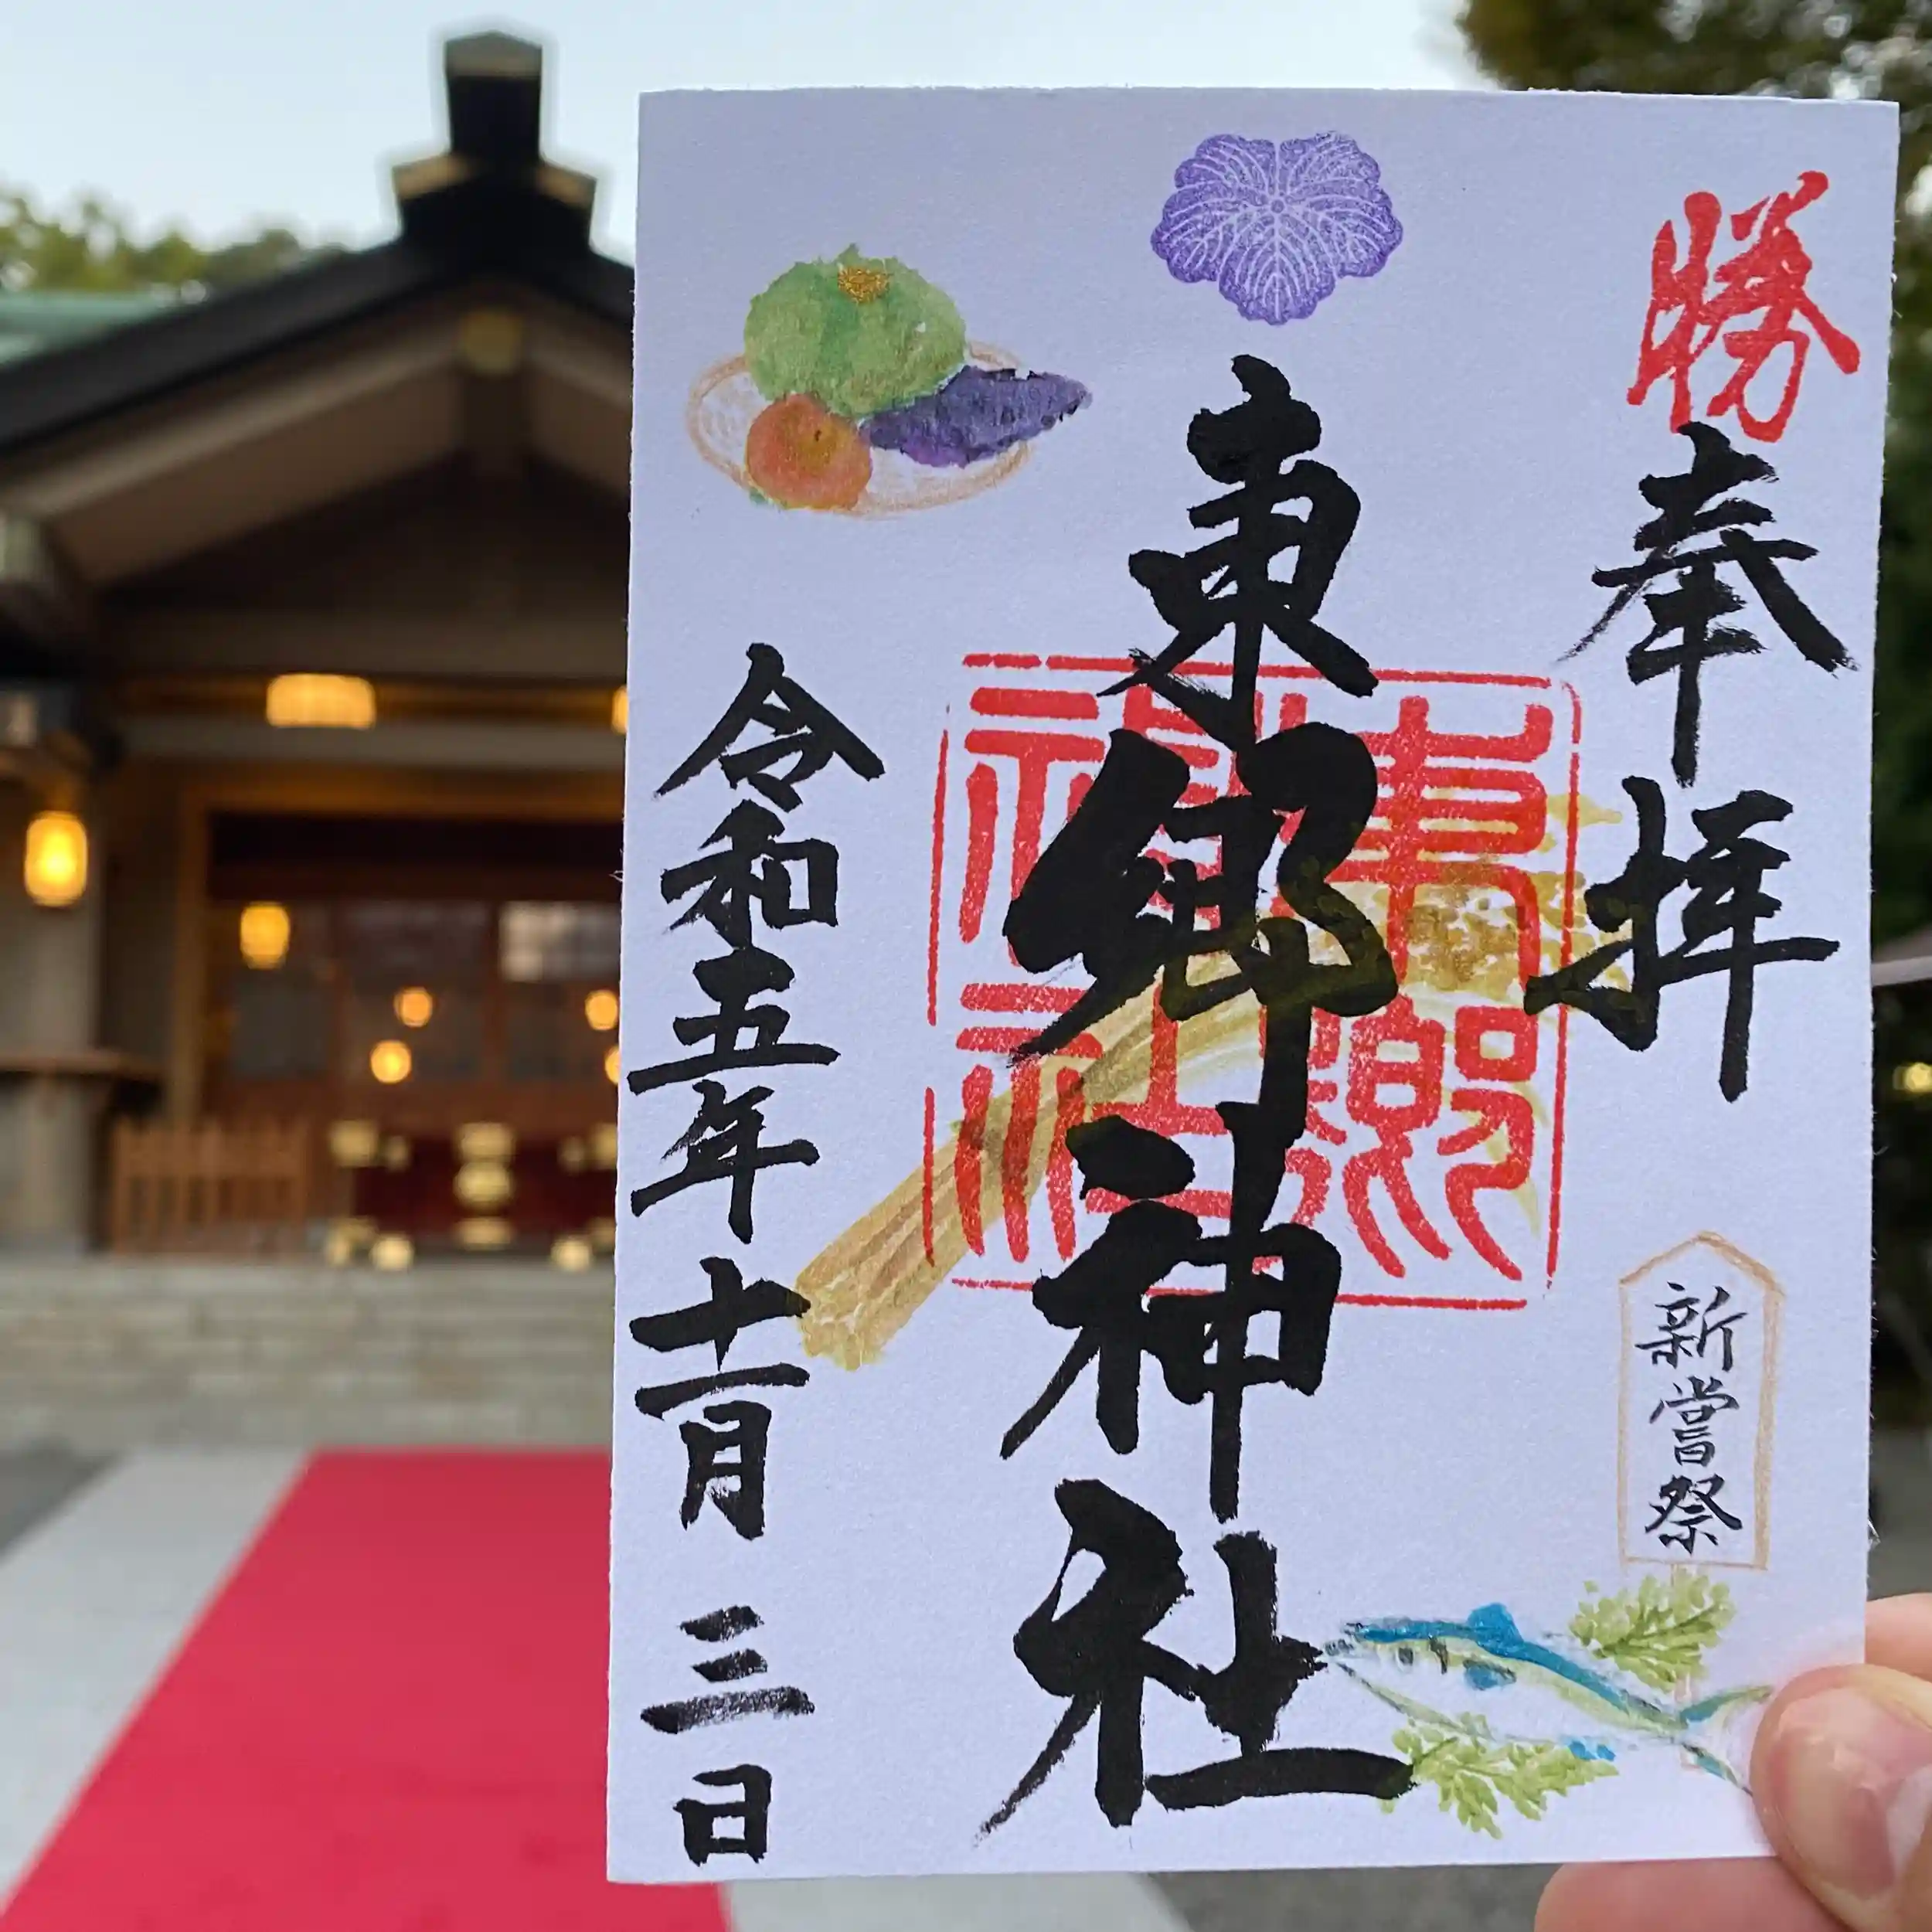 勝
奉拝
東郷神社
東郷神社
新嘗祭
令和五年十一月三日